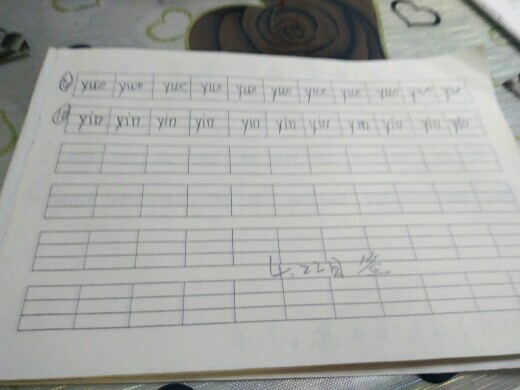 ⑨ yue yue yue yue yue yue yue yue yue yue yue
⑩ yin yin yin yin yin yin yin yin yin yin yin
4.22日